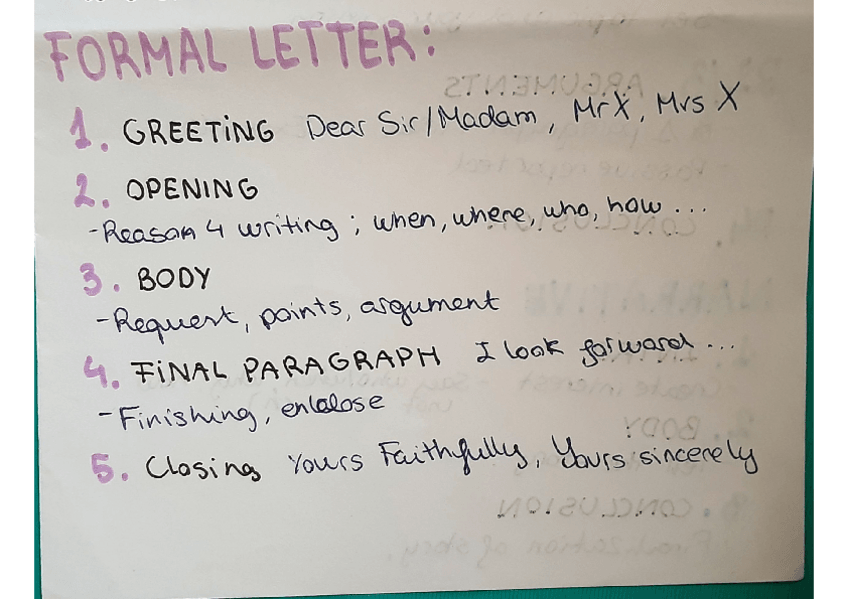 FORMAL LETTER:
1. GREETING Dear Sir/Madam, Mr X, Mrs X
2. OPENING
-Reason 4 writing ; when, where, who, how ...
3. BODY
-Request, points, argument
4. FINAL PARAGRAPH I look forward ...
-Finishing, enclose
5. Closing Yours Faithfully, Yours sincerely
ARGUMENTS
CONCLUSION
NARRATIVE
BODY
3. CONCLUSION